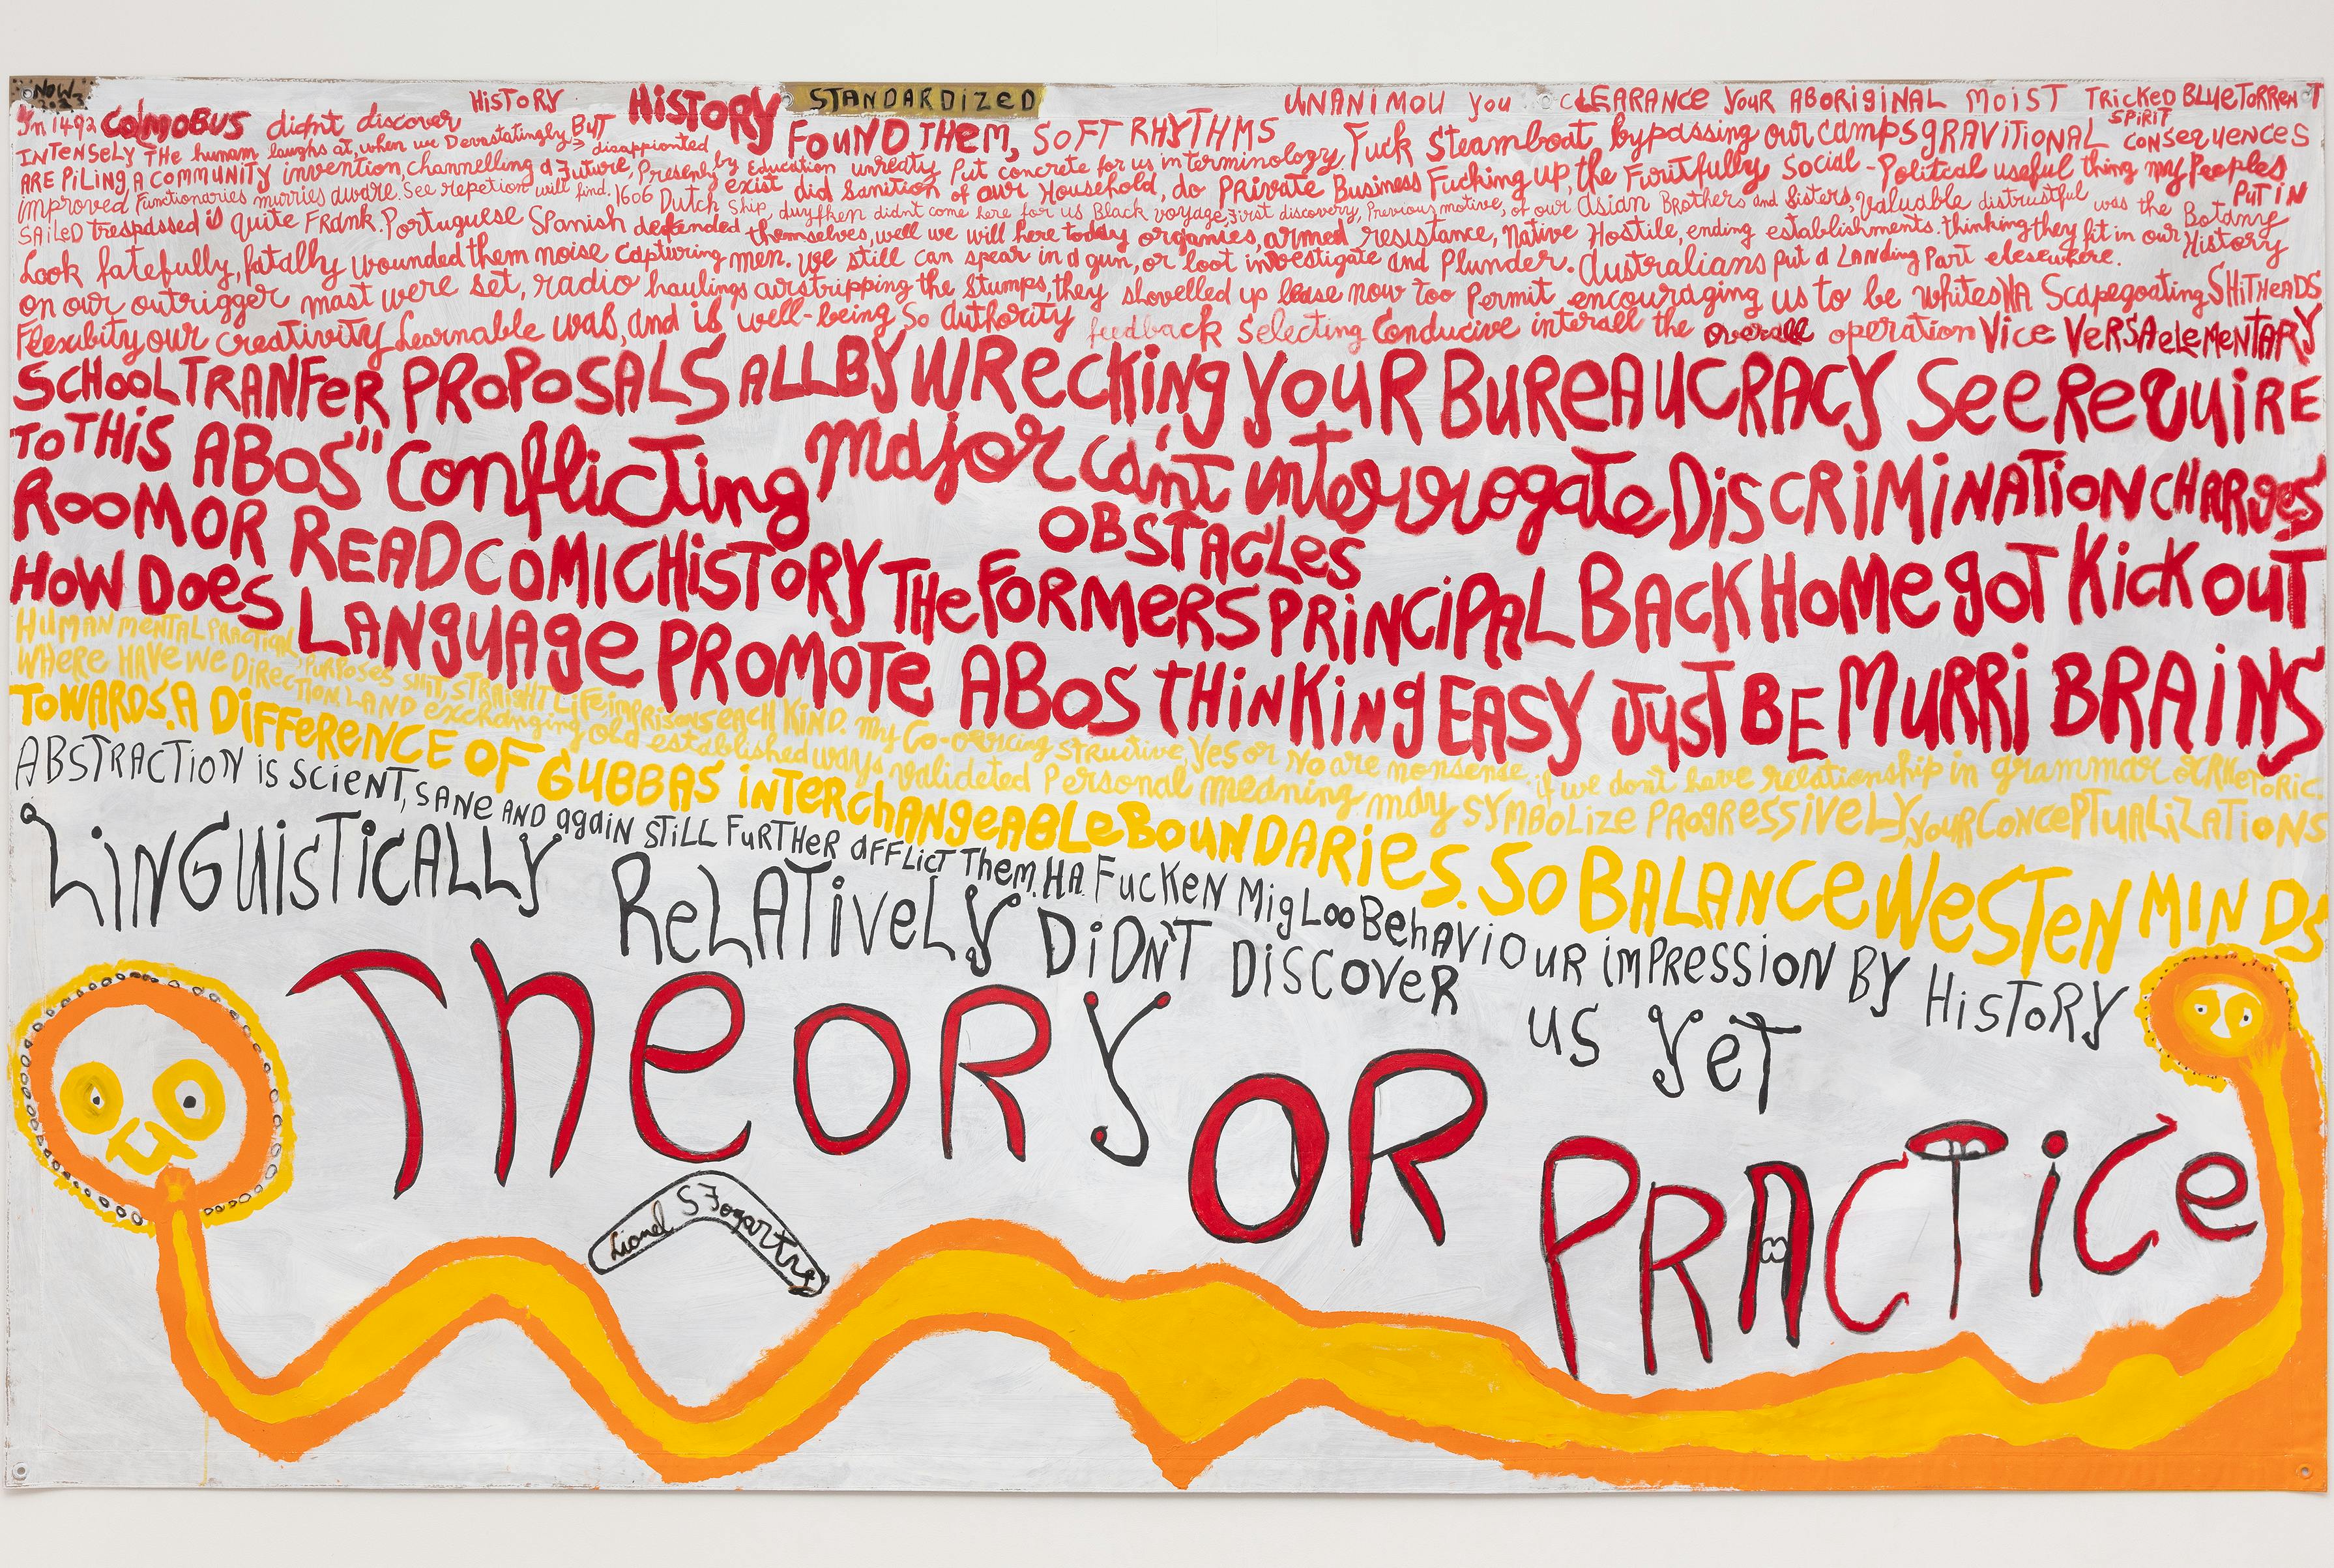 NOW 2023
STANDARDIZED
In 1492 COLMOBUS didn't discover HiSTORY HiSTORY FOUND THEM, SOFT RHYTHMS UNANIMOU you CLEARANCE YOUR ABORIGINAL MOIST TRiCKED BLUE TORRENT
INTENSELY THE humam laughs at, when we Devastatingly BUT disappionted Fuck Steamboat bypassing our camps GRAVITIONAL SPiRiT CONSEQUENCES
ARE PiLiNG, A COMMUNITY invention, channelling a Future, Presenly by Education unreaty Put concrete for us in terminology
improved Functionaries murries aware. See repetion will find, 1606 Dutch Ship, duyfken didnt come here for us Black voyage, First discovery, Previous motive, of our Asian Brothers and Sisters, Valuable distrustful was the Botany
exist did Sanition of our Household, do PRivate Business Fucking up, the Firutfully Social - Politcal useful thing my Peoples PUT iN
SAiLED trespassed is quite FRANK. Portuguese Spanish defended themselves, well we will here today organies, armed resistance, Native Hostile, ending establishments. thinking they fit in our History
Look fatefully, fatally wounded them noise capturing men. We still can spear in a gun, or loot investigate and Plunder. Australians put a Landing Part elesewhere.
on our outrigger mast were set, radio haulings airstripping the Stumps, they shovelled up lease now too Permit encouraging us to be whites HA Scapegoating SHiTHEADS
Flexibity our creativity Learnable was, and is well-being So authority feedback Selecting Conducive interall the overall operation Vice VERSA eLeMENTARY
SCHOOL TRANFeR PROPOSALS ALL BY WRecKiNg YOUR BUREAUCRACY See ReQUiRE
TO THiS ABOS" Conflicting major can't interrogate DiSCRiMiNATiON CHARges
ROOM OR READ COMIC HISTORY OBSTACLES THe FORMERS PRiNCiPAL BACK HOMe gOT Kick OUT
HOW DOeS LANGUAge PROMOTe ABOS THiNKiNg EASY JUST BE MURRi BRAiNS
HUMAN MENTAL PRACTICAL, PURPOSES SHiT, STRAiGHT LiFe, iMPRiSONS EACH KiND. My Co-oercing structive, Yes or No are nonsense, if we don't have relationship in grammar or RHeTORiC.
WHERe HAVe We DiRECTiON LAND exchanging old established ways valideted Personal meaning may SYMBOLiZE PROgRESSiVeLY YOUR CONCePTUALiZATiONS
TOWARDS. A DiFFeReNCE OF GUBBAS iNTERchANgeABLe BOUNDARies. SO BALANCe WeSTeN MiNDS
ABSTRACTiON iS SCieNT, SANe AND again STiLL FuRTHeR AFFLicT THem. HA FucKeN MigLoo BehAViOUR iMPReSSiON BY HiSTORY
LiNGUiSTiCALLY ReLATiveLY DiDN'T DiSCOVeR US YeT
THeORY OR PRACTiCe
Lionel S Fogarty